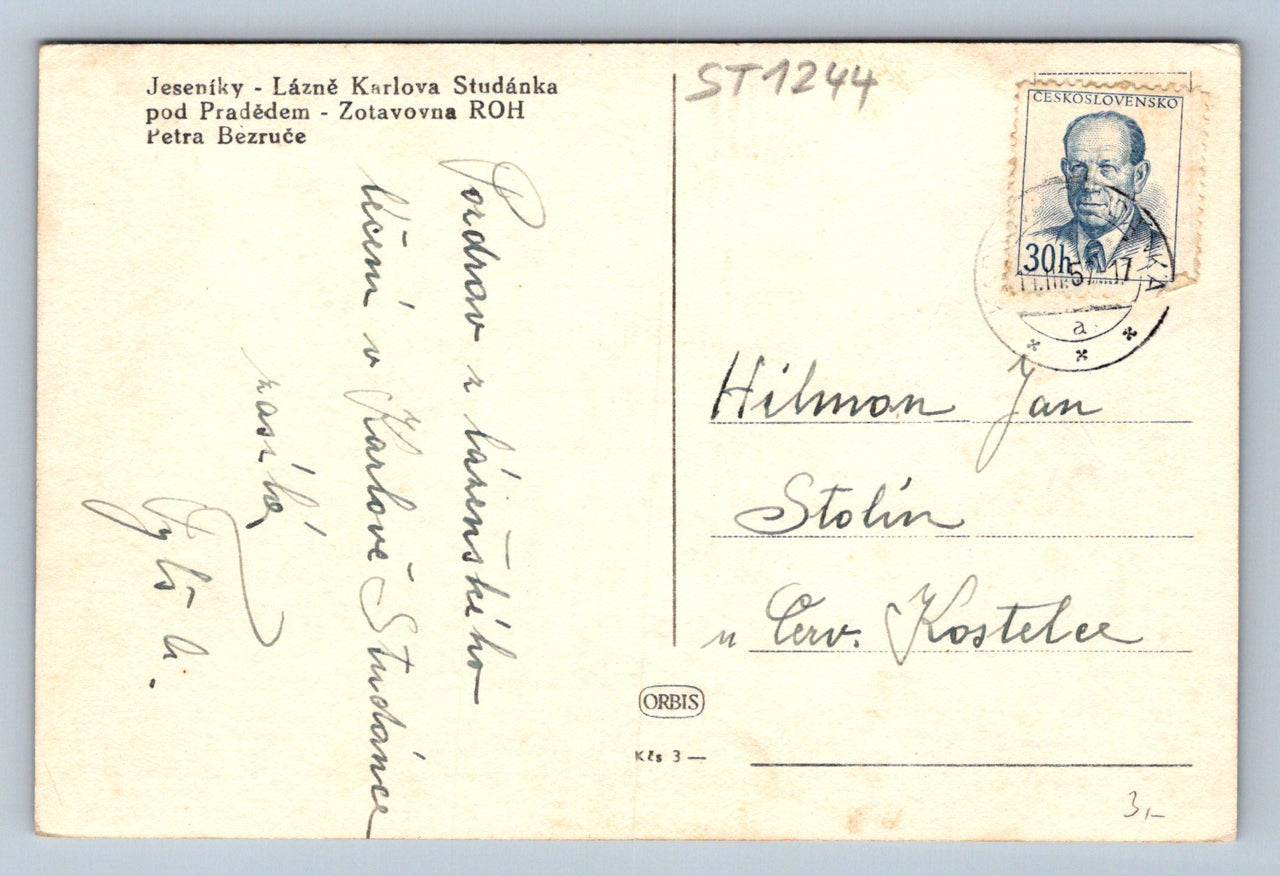 Jeseníky - Lázně Karlova Studánka
pod Pradědem - Zotavovna ROH
Petra Bezruče
Pozdrav z lázeňského
léčení v Karlově Studánce
zasílá
ST1244
ČESKOSLOVENSKO
30h
11.III.57-17
a
Hilman Jan
Stolín
u Červ. Kostelce
ORBIS
Kčs 3 —
3,-